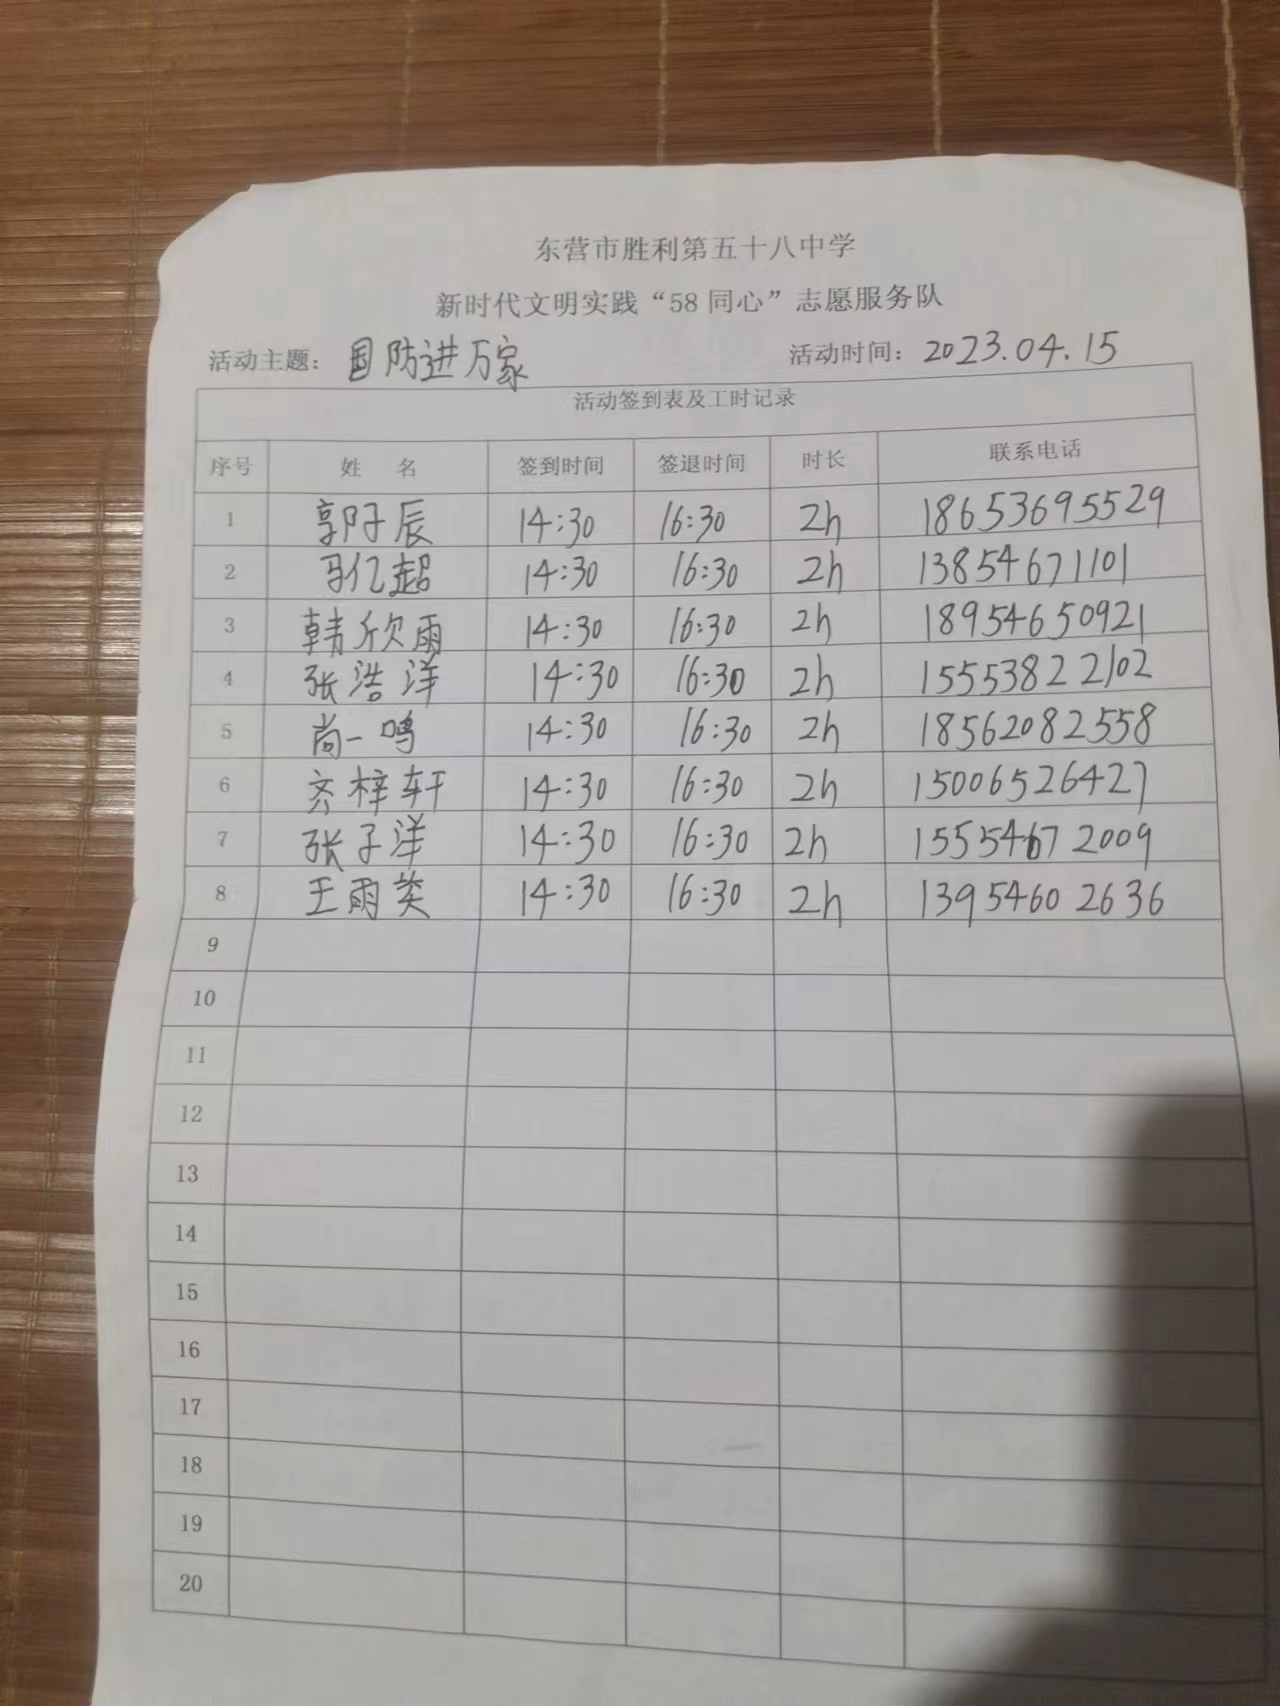 东营市胜利第五十八中学
新时代文明实践“58 同心”志愿服务队
活动主题：国防进万家 活动时间：2023.04.15
活动签到表及工时记录
序号 姓 名 签到时间 签退时间 时长 联系电话
1 郭子辰 14:30 16:30 2h 18653695529
2 马亿超 14:30 16:30 2h 13854671101
3 韩欣雨 14:30 16:30 2h 18954650921
4 张浩洋 14:30 16:30 2h 15553822102
5 尚一鸣 14:30 16:30 2h 18562082558
6 齐梓轩 14:30 16:30 2h 15006526427
7 张子洋 14:30 16:30 2h 15554672009
8 王雨荚 14:30 16:30 2h 13954602636
9
10
11
12
13
14
15
16
17
18
19
20